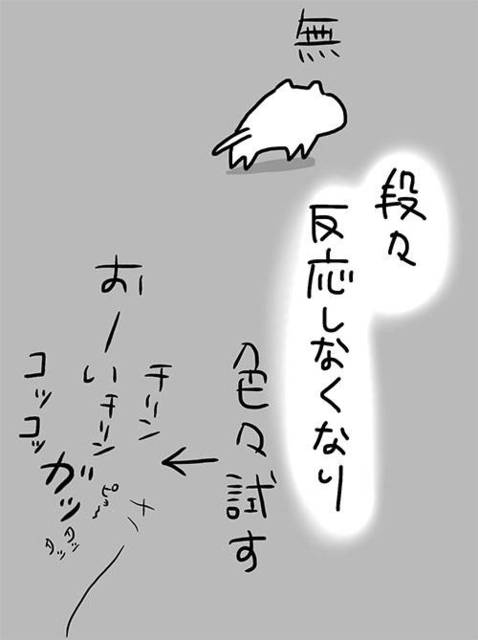 無
段々
反応しなくなり
色々試す
チリン
チリン
おーい
コッコッ
ガッ
ピョー
タッタッ